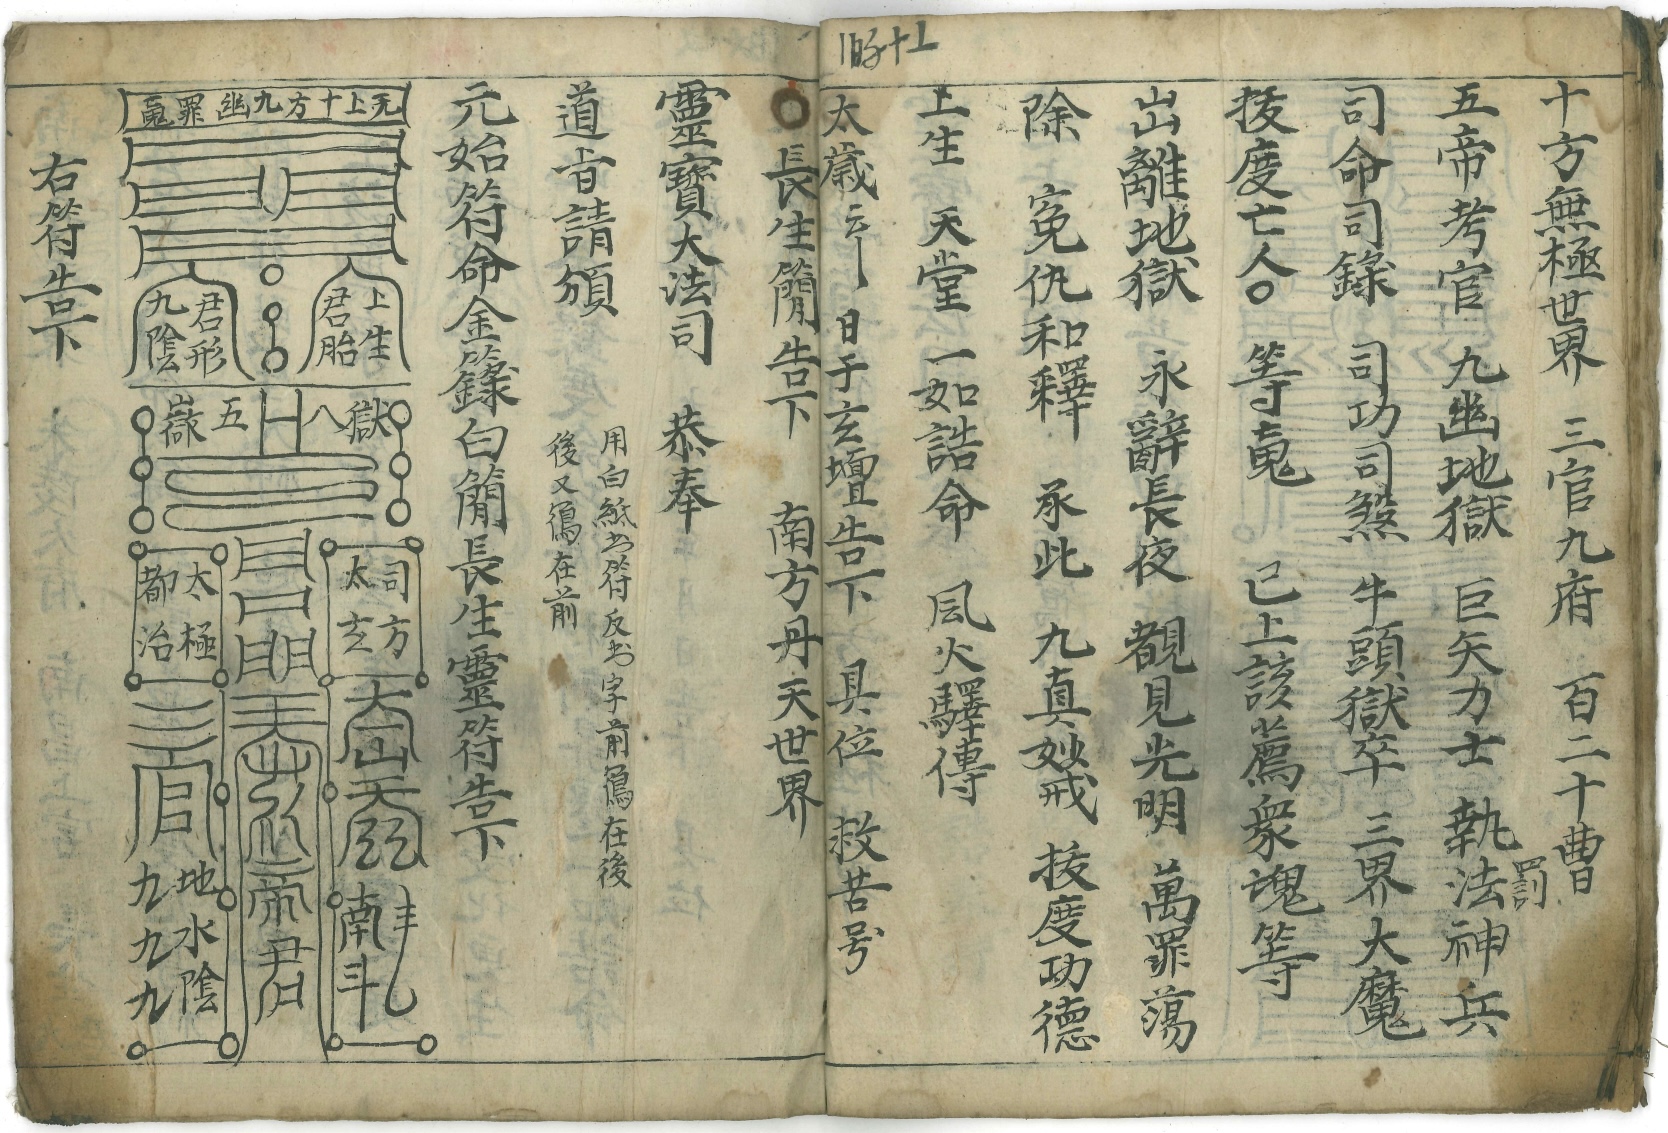 十方無極世界 三官九府 百二十曹
五帝考官 九幽地獄 巨矢力士 執法神兵
罰
司命司錄 司功司煞 牛頭獄卒 三界大魔
拔度亡人〇 等䰟 已上該薦眾魂等
出離地獄 永辭長夜 覩見光明 萬罪蕩
除 冤仇和釋 承此 九真妙戒 拔度功德
上生 天堂 一如誥命 風火驛傳
太歲 日于玄壇告下 具位 救苦号
長生簡告下 南方丹天世界
靈寶大法司 恭奉
道旨請頒
用白紙书符反书字前寫在後
後又寫在前
元始符命金籙白簡長生靈符告下
无上十方九幽罪䰟
上生
君胎
君形
九陰
八獄
五嶽
司方
太玄
太極
都治
南斗
帝君
三官
地水陰
九九九
右符告下